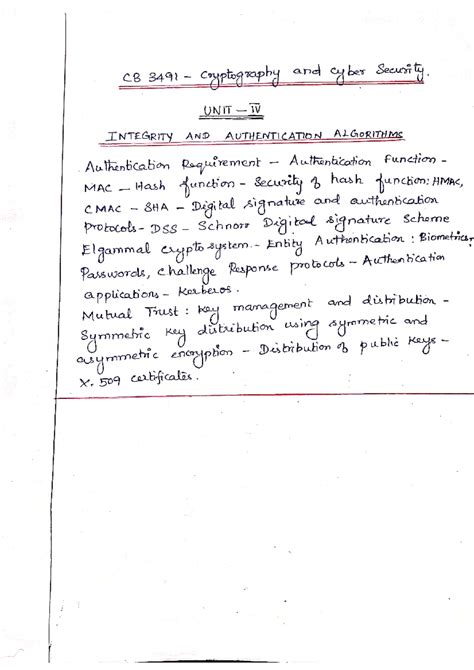 CB 3491 - Cryptography and Cyber Security.
UNIT - IV
INTEGRITY AND AUTHENTICATION ALGORITHMS
Authentication Requirement - Authentication function -
MAC - Hash function - Security of hash function: HMAC,
CMAC - SHA - Digital signature and authentication
protocols - DSS - Schnorr Digital signature Scheme
Elgammal cryptosystem. - Entity Authentication : Biometrics,
Passwords, challenge Response protocols - Authentication
applications - Kerberos.
Mutual Trust : Key management and distribution -
Symmetric key distribution using symmetric and
asymmetric encryption - Distribution of public keys -
X. 509 certificates.